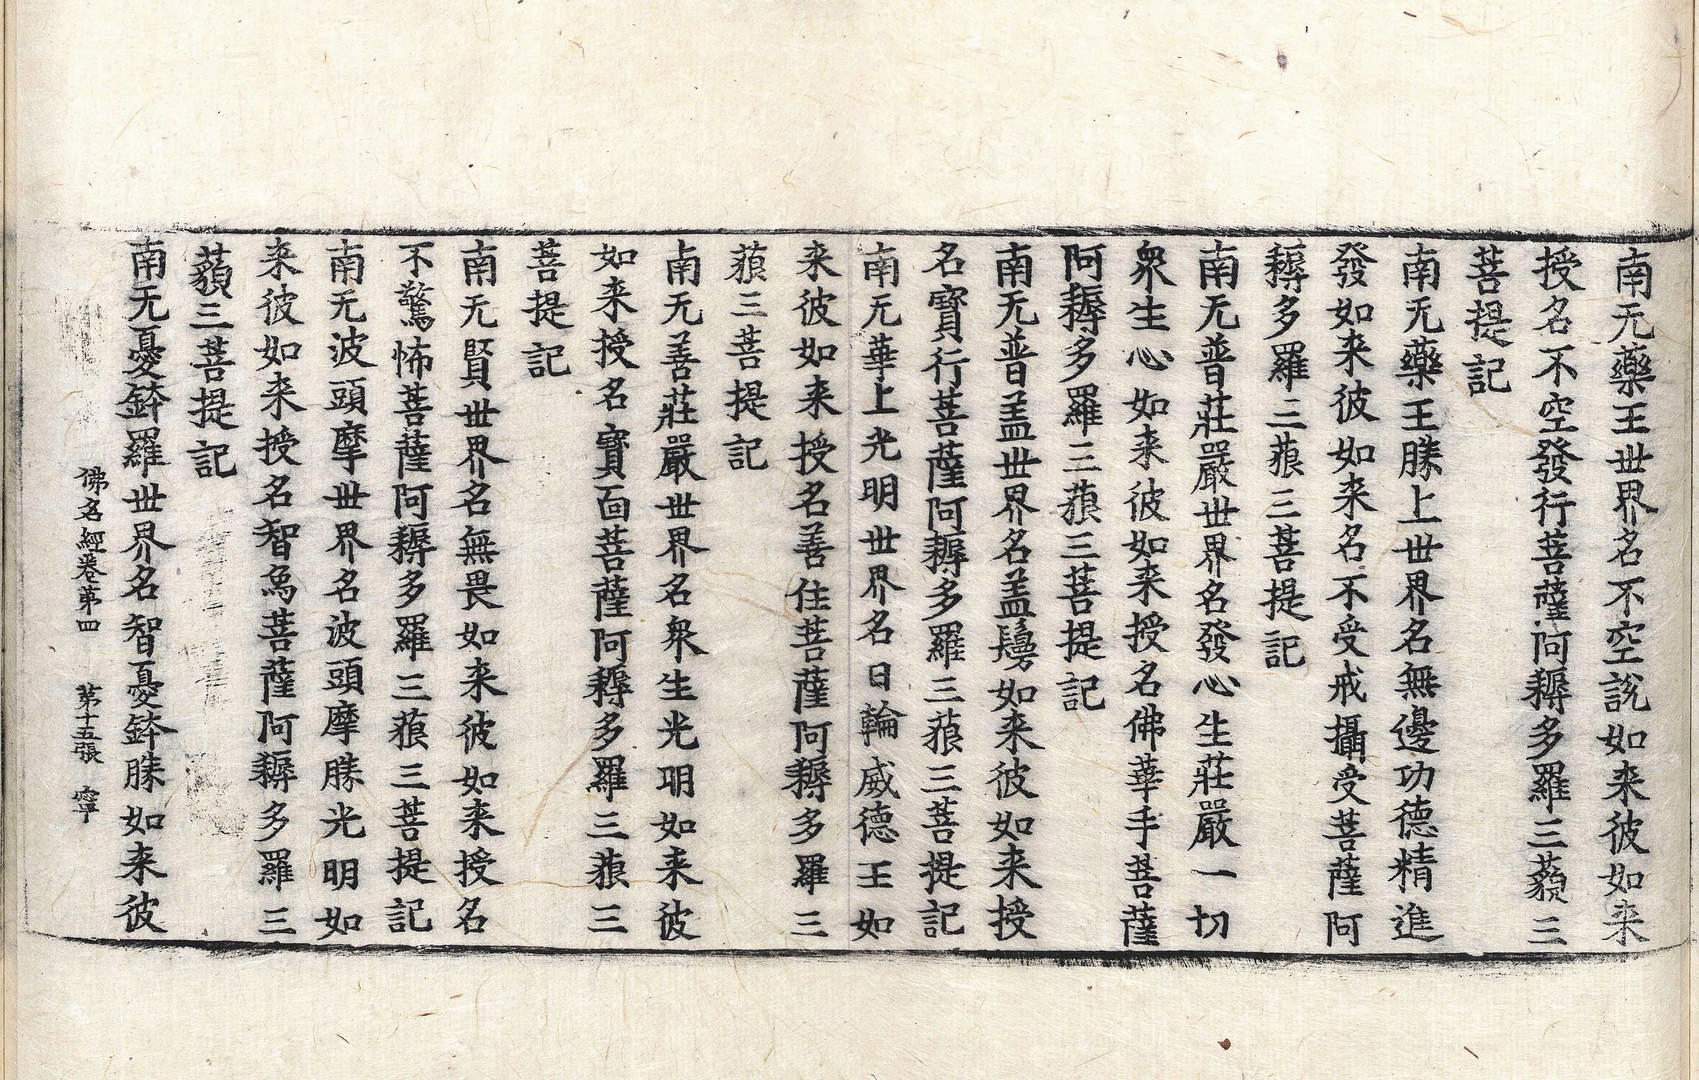 南无藥王世界名不空說如来彼如来
授名不空發行菩薩阿耨多羅三藐三
菩提記
南无藥王勝上世界名無邊功德精進
發如来彼如来名不受戒攝受菩薩阿
耨多羅三藐三菩提記
南无普莊嚴世界名發心生莊嚴一切
衆生心如来彼如来授名佛華手菩薩
阿耨多羅三藐三菩提記
南无普盖世界名盖鬘如来彼如来授
名寶行菩薩阿耨多羅三藐三菩提記
南无華上光明世界名日輪威德王如
来彼如来授名善住菩薩阿耨多羅三
藐三菩提記
南无善莊嚴世界名衆生光明如来彼
如来授名寶面菩薩阿耨多羅三藐三
菩提記
南无賢世界名無畏如来彼如来授名
不驚怖菩薩阿耨多羅三藐三菩提記
南无波頭摩世界名波頭摩勝光明如
来彼如来授名智烏菩薩阿耨多羅三
藐三菩提記
南无憂鉢羅世界名智憂鉢勝如来彼
佛名經卷第四 第十五張 寧